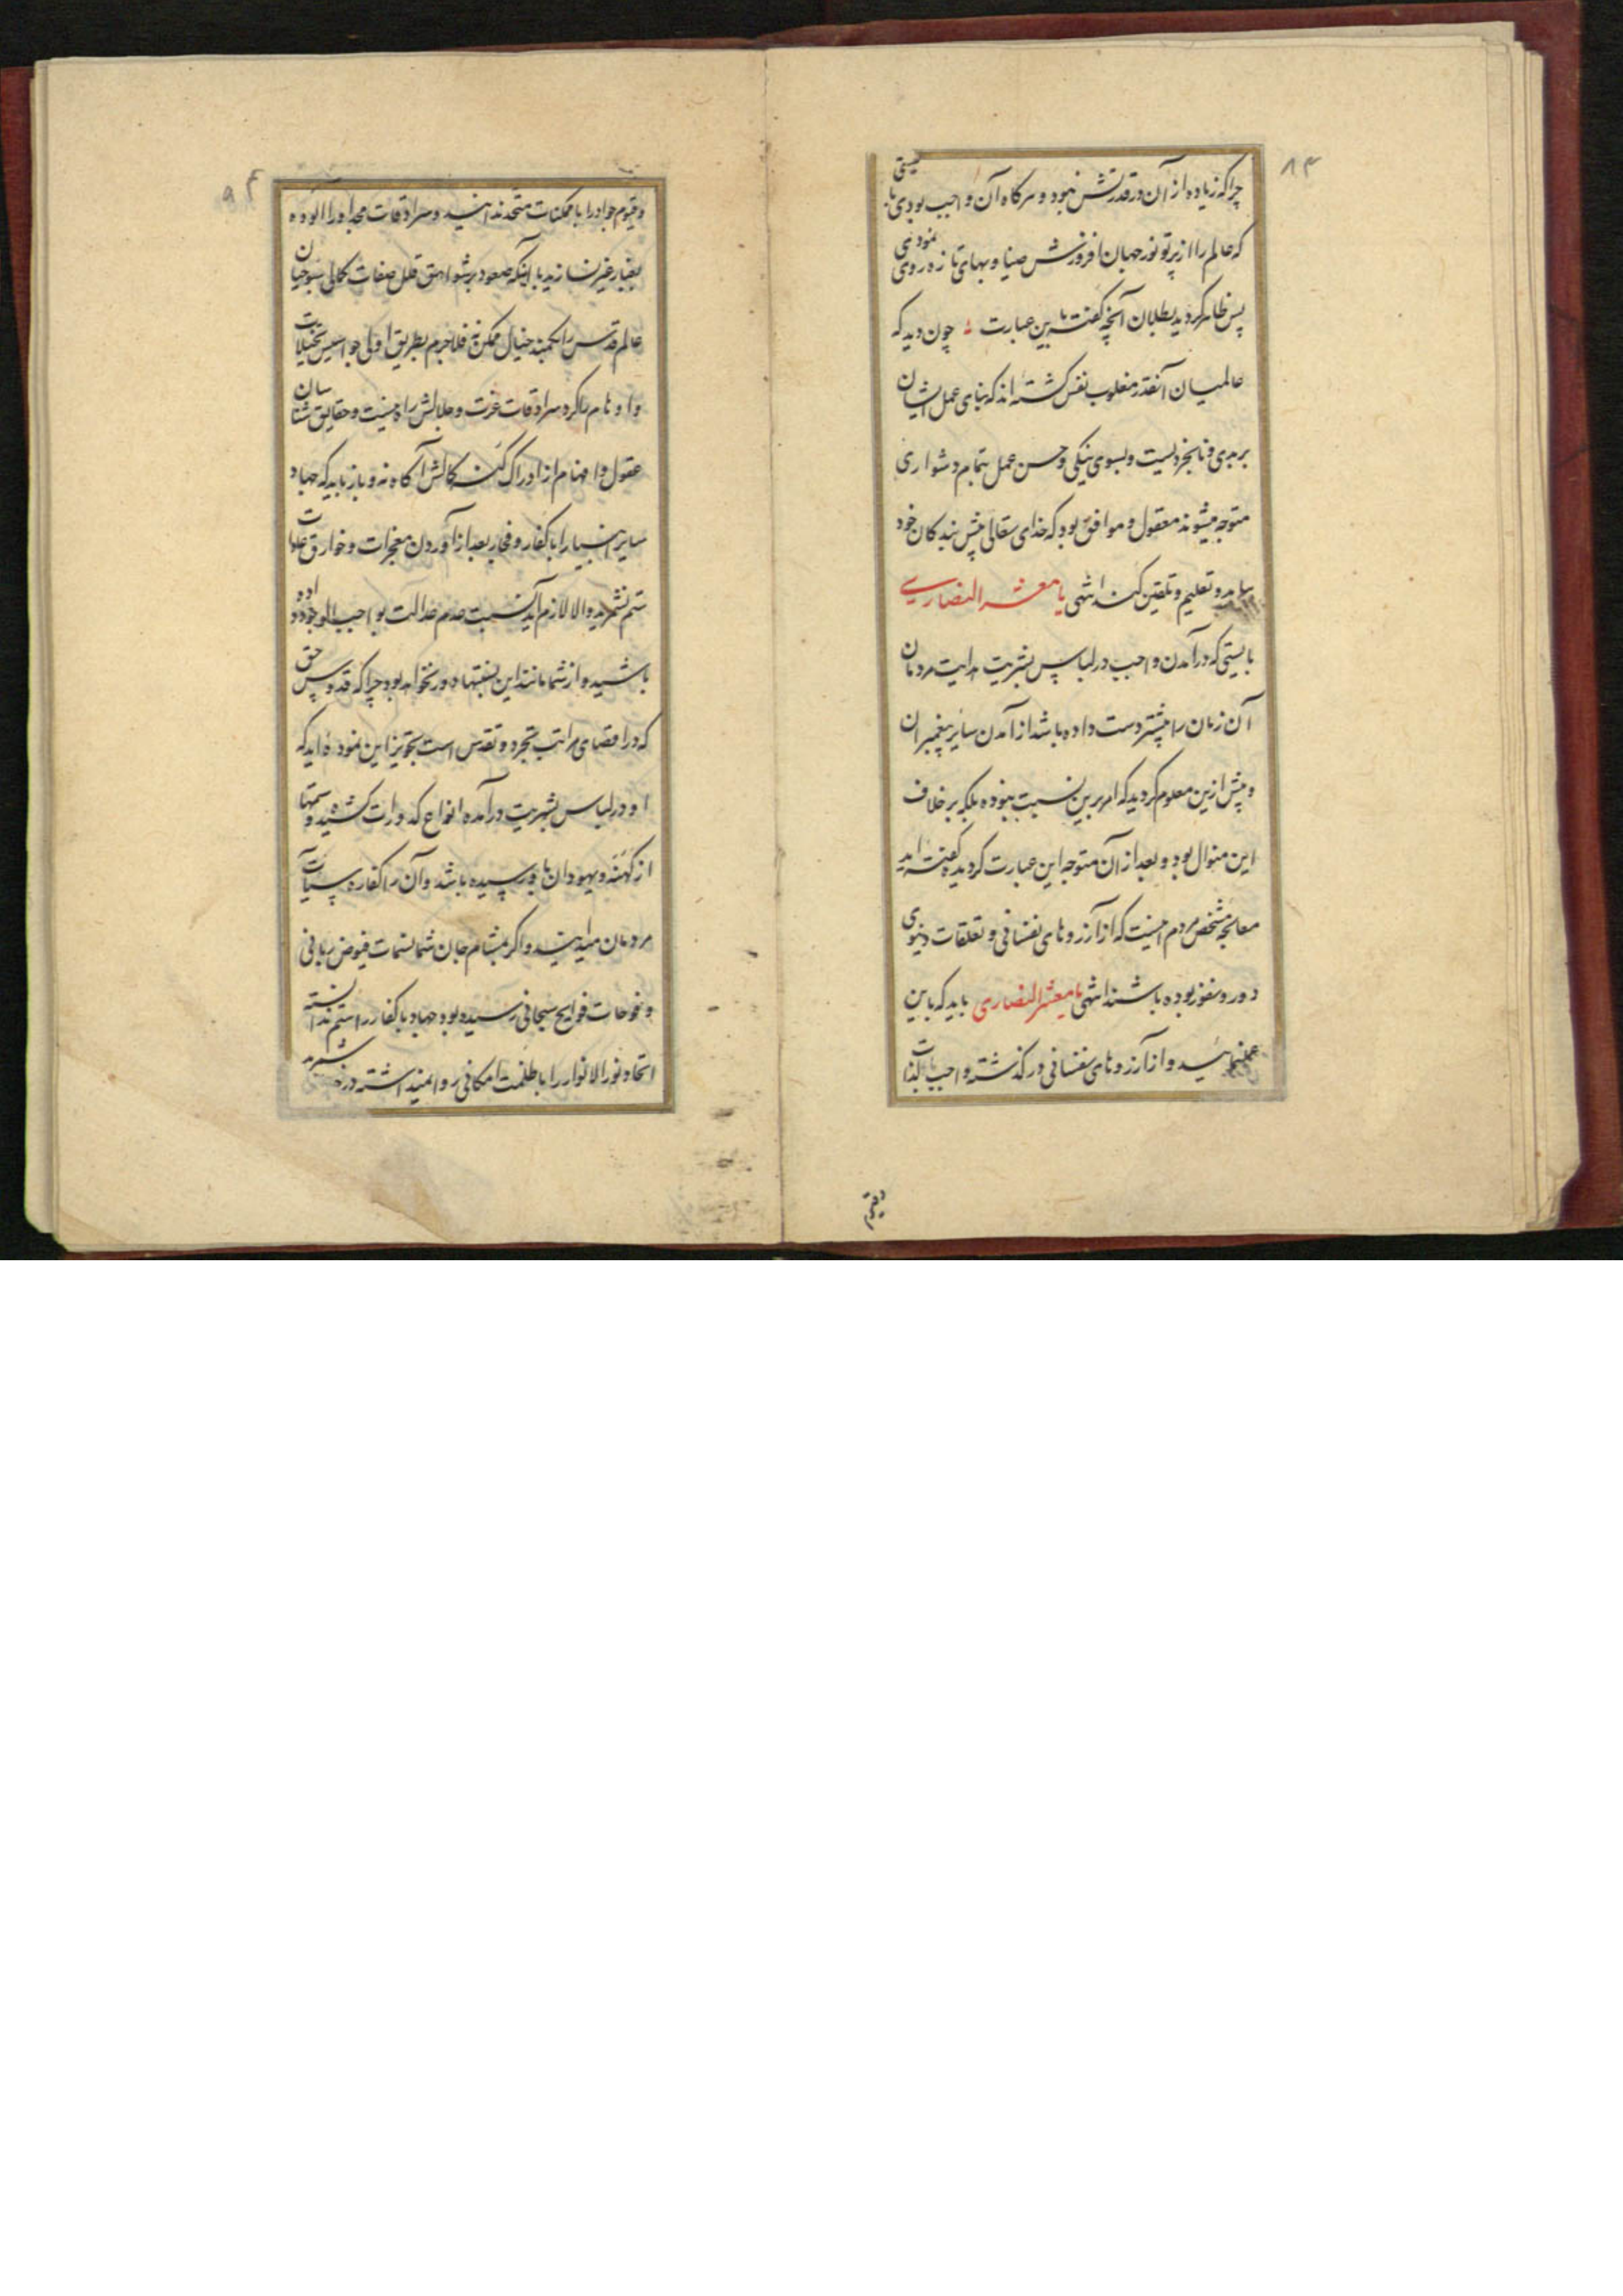 ۸۳
چرا که زیاده از آن در قدرتش نبود و هرگاه آن واجب بودی بایستی
که عالم را از پرتو نور جهان افروزش ضیا و بهای تازه روی نمودی
پس ظاهر گردید بطلان آنچه گفته باین عبارت چون دید که
عالمیان آنقدر مغلوب نفس گشته اند که بنای عمل ایشان
بر بدی و نابخردیست و بسوی نیکی و حسن عمل بتمام دشواری
متوجه میشوند معقول و موافق بود که خدای تعالی پیش بندگان خود
بیاید و تعلیم و تلقین کند انتهی یا معشر النصاری
بایستی که در آمدن واجب در لباس بشریت هدایت مردمان
آن زمان را بیشتر دست داده باشد از آمدن سایر پیغمبران
و پیش ازین معلوم گردید که امر برین نسبت نبوده بلکه بر خلاف
این منوال بود و بعد از آن متوجه این عبارت گردیده گفته اید
معالجه مشخص مردم اینست که از آرزوهای نفسانی و تعلقات دنیوی
دور و نفور بوده باشند انتهی یا معشر النصاری باید که باین
عمل نمایید و از آرزوهای نفسانی در گذشته واجب بالذات
وقیوم
و قیوم جواد را با ممکنات متحد ندانید و سرادقات مجد او را آلوده
بغبار غیر نسازید با اینکه صعود بر شواهق قلل صفات کمالی سبوحیان
عالم قدس را بکمند خیال ممکن نه فلاجرم بطریق اولی جواسیس تخیلات
و اوهام را گرد سرادقات عزت و جلالش راه نیست و حقایق شناسان
عقول و افهام از ادراک کنه کمالش آگاه نه و باز باید که جهاد
سایر انبیا را با کفار و فجار بعد از آوردن معجزات و خوارق عادات
ستم نشمرید و الا لازم آید نسبت عدم عدالت بواجب الوجود داده
باشید و از شما مانند این نسبتها دور نخواهد بود چرا که قدوس حق
که در اقصای مراتب تجرد و تقدس است تجویز این نموده اید که
او در لباس بشریت در آمده انواع کدورات کشیده و ستمها
از کهنه و یهودان باو رسیده باشد و آن را کفاره سیئات
مردمان میدانید و اگر بمشام جان شما نسمات فیوض ربانی
و فوحات فوایح سبحانی رسیده بود جهاد با کفار را ستم ندانسته
اتحاد نور الانوار را با ظلمت امکانی روا نمیداشتید